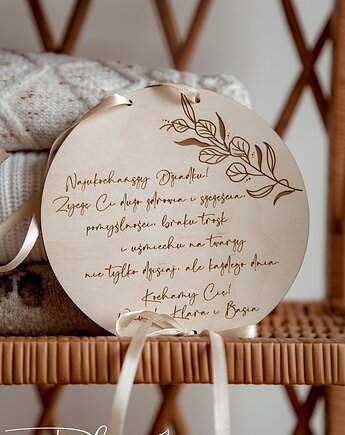 Najukochańszy Dziadku!
Życzę Ci dużo zdrowia i szczęścia,
pomyślności, braku trosk
i uśmiechu na twarzy
nie tylko dzisiaj, ale każdego dnia.
Kochamy Cię!
Klara i Basia